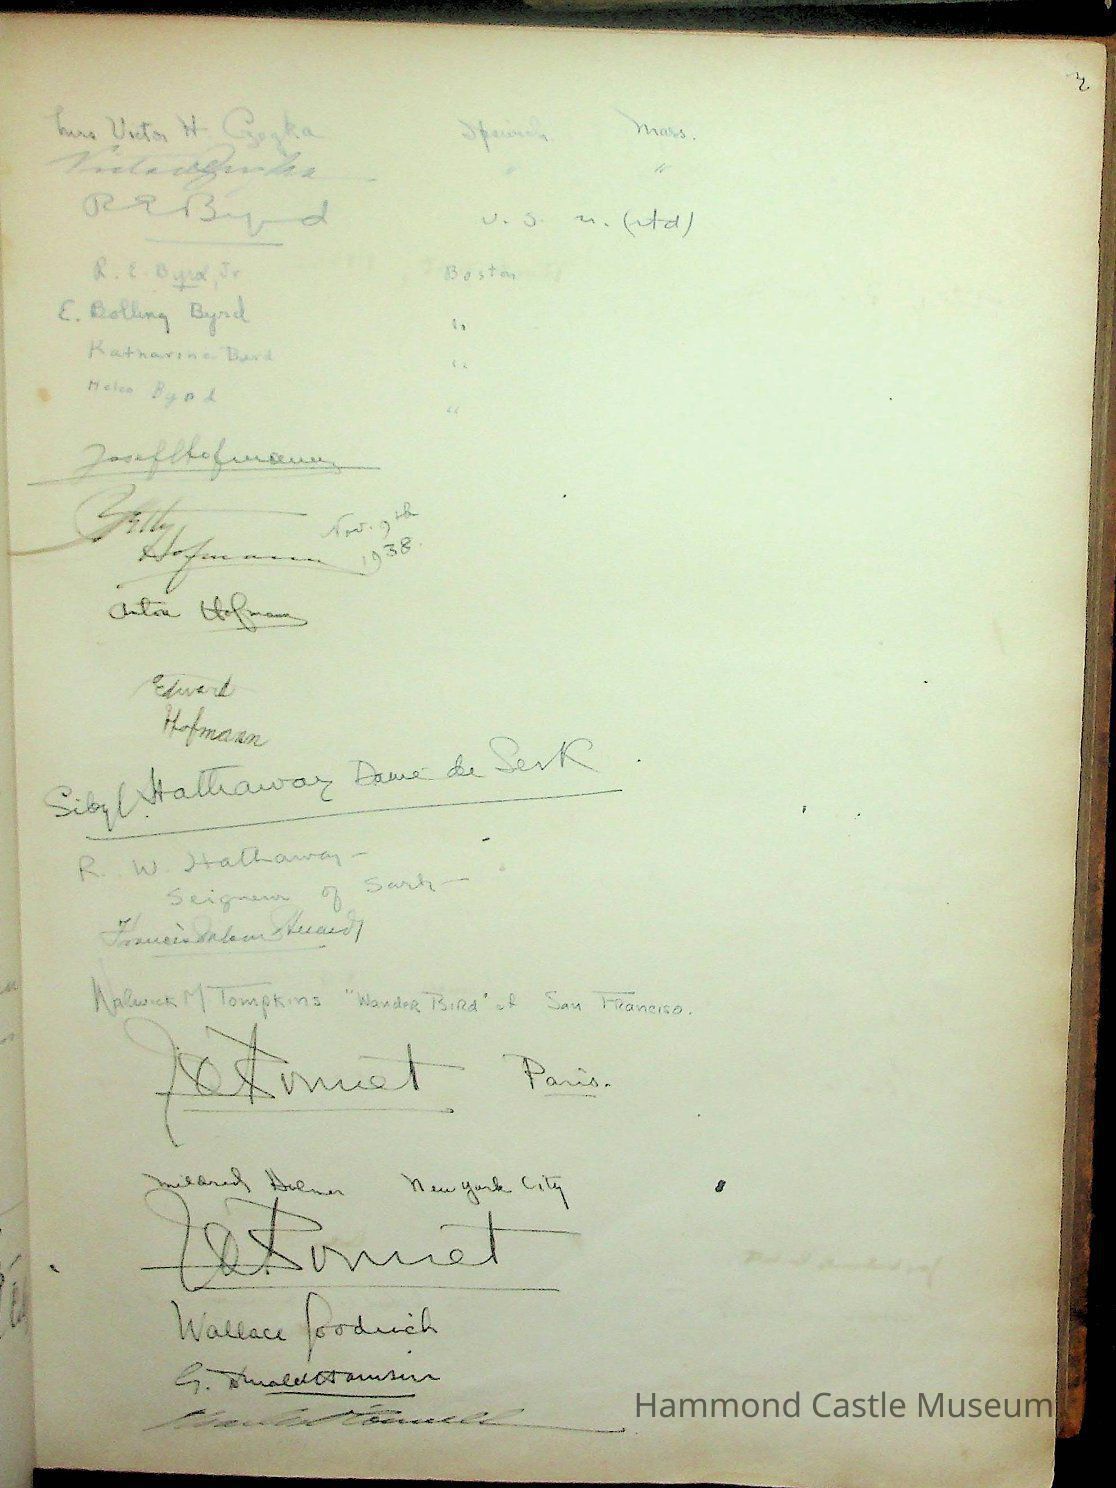 2
Mrs Victor H. Czegka Ipswich Mass.
" "
R E Byrd U. S. N. (rtd)
R. E. Byrd, Jr Boston
E. Bolling Byrd "
Katharine Byrd "
Helen Byrd "
Josef Hofmann
Betty
Hofmann Nov. 9th
1938.
Anton Hofmann
Edward
Hofmann
Sibyl Hathaway Dame de Serk
R. W. Hathaway —
Seigneur of Sark —
Francis
Warwick M Tompkins "Wander Bird" of San Francisco.
Bonnet Paris.
Mildred New York City
Bonnet
Wallace Goodrich
G. Donald Harrison
Hammond Castle Museum